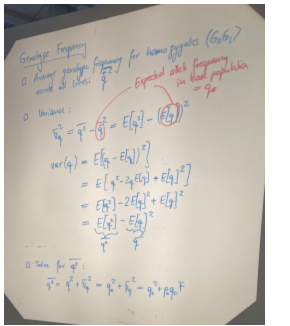 Genotype Frequency
□ Average genotype frequency for homozygotes (G₂G₂)
across all lines: q̄²
Expected allele frequency
in base population
= q₀
□ Variance:
σ²_q = q̄² - q̄² = E[q²] - (E[q])²
var(q) = E[(q - E[q])²]
= E[q² - 2qE[q] + E[q]²]
= E[q²] - 2E[q]² + E[q]²
= E[q²] - E[q]²
q̄² q̄²
□ Solve for q̄²:
q̄² = q̄² + σ²_q = q₀² + σ²_q = q₀² + p₀q₀F